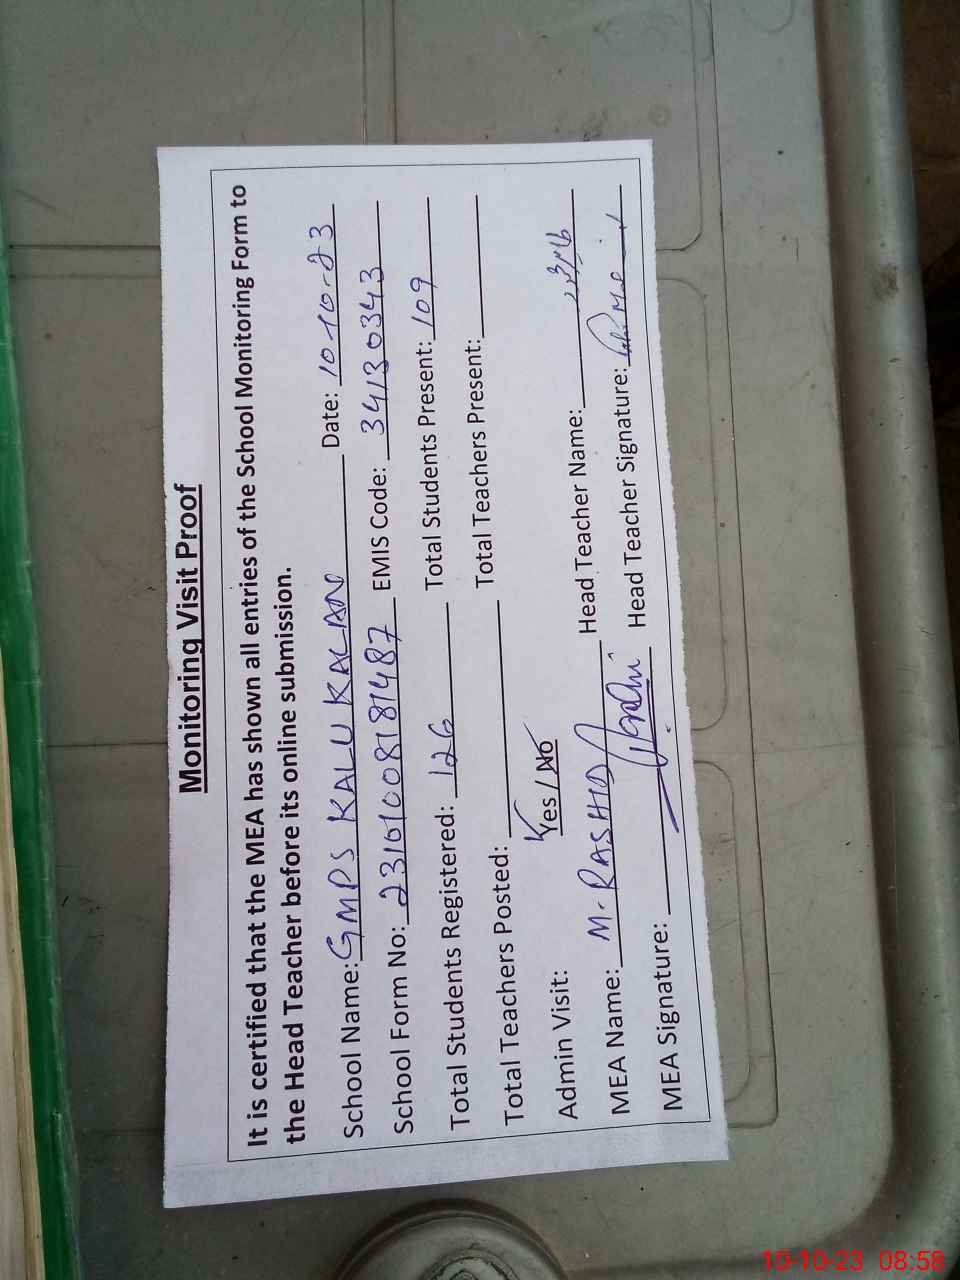 Monitoring Visit Proof
It is certified that the MEA has shown all entries of the School Monitoring Form to
the Head Teacher before its online submission.
School Name: GMPS KALU KALAN Date: 10-10-23
School Form No: 23101008181487 EMIS Code: 34130343
Total Students Registered: 126 Total Students Present: 109
Total Teachers Posted: Total Teachers Present:
Admin Visit: Yes / No
MEA Name: M. RASHID Head Teacher Name:
MEA Signature: Head Teacher Signature:
10-10-23 08:58